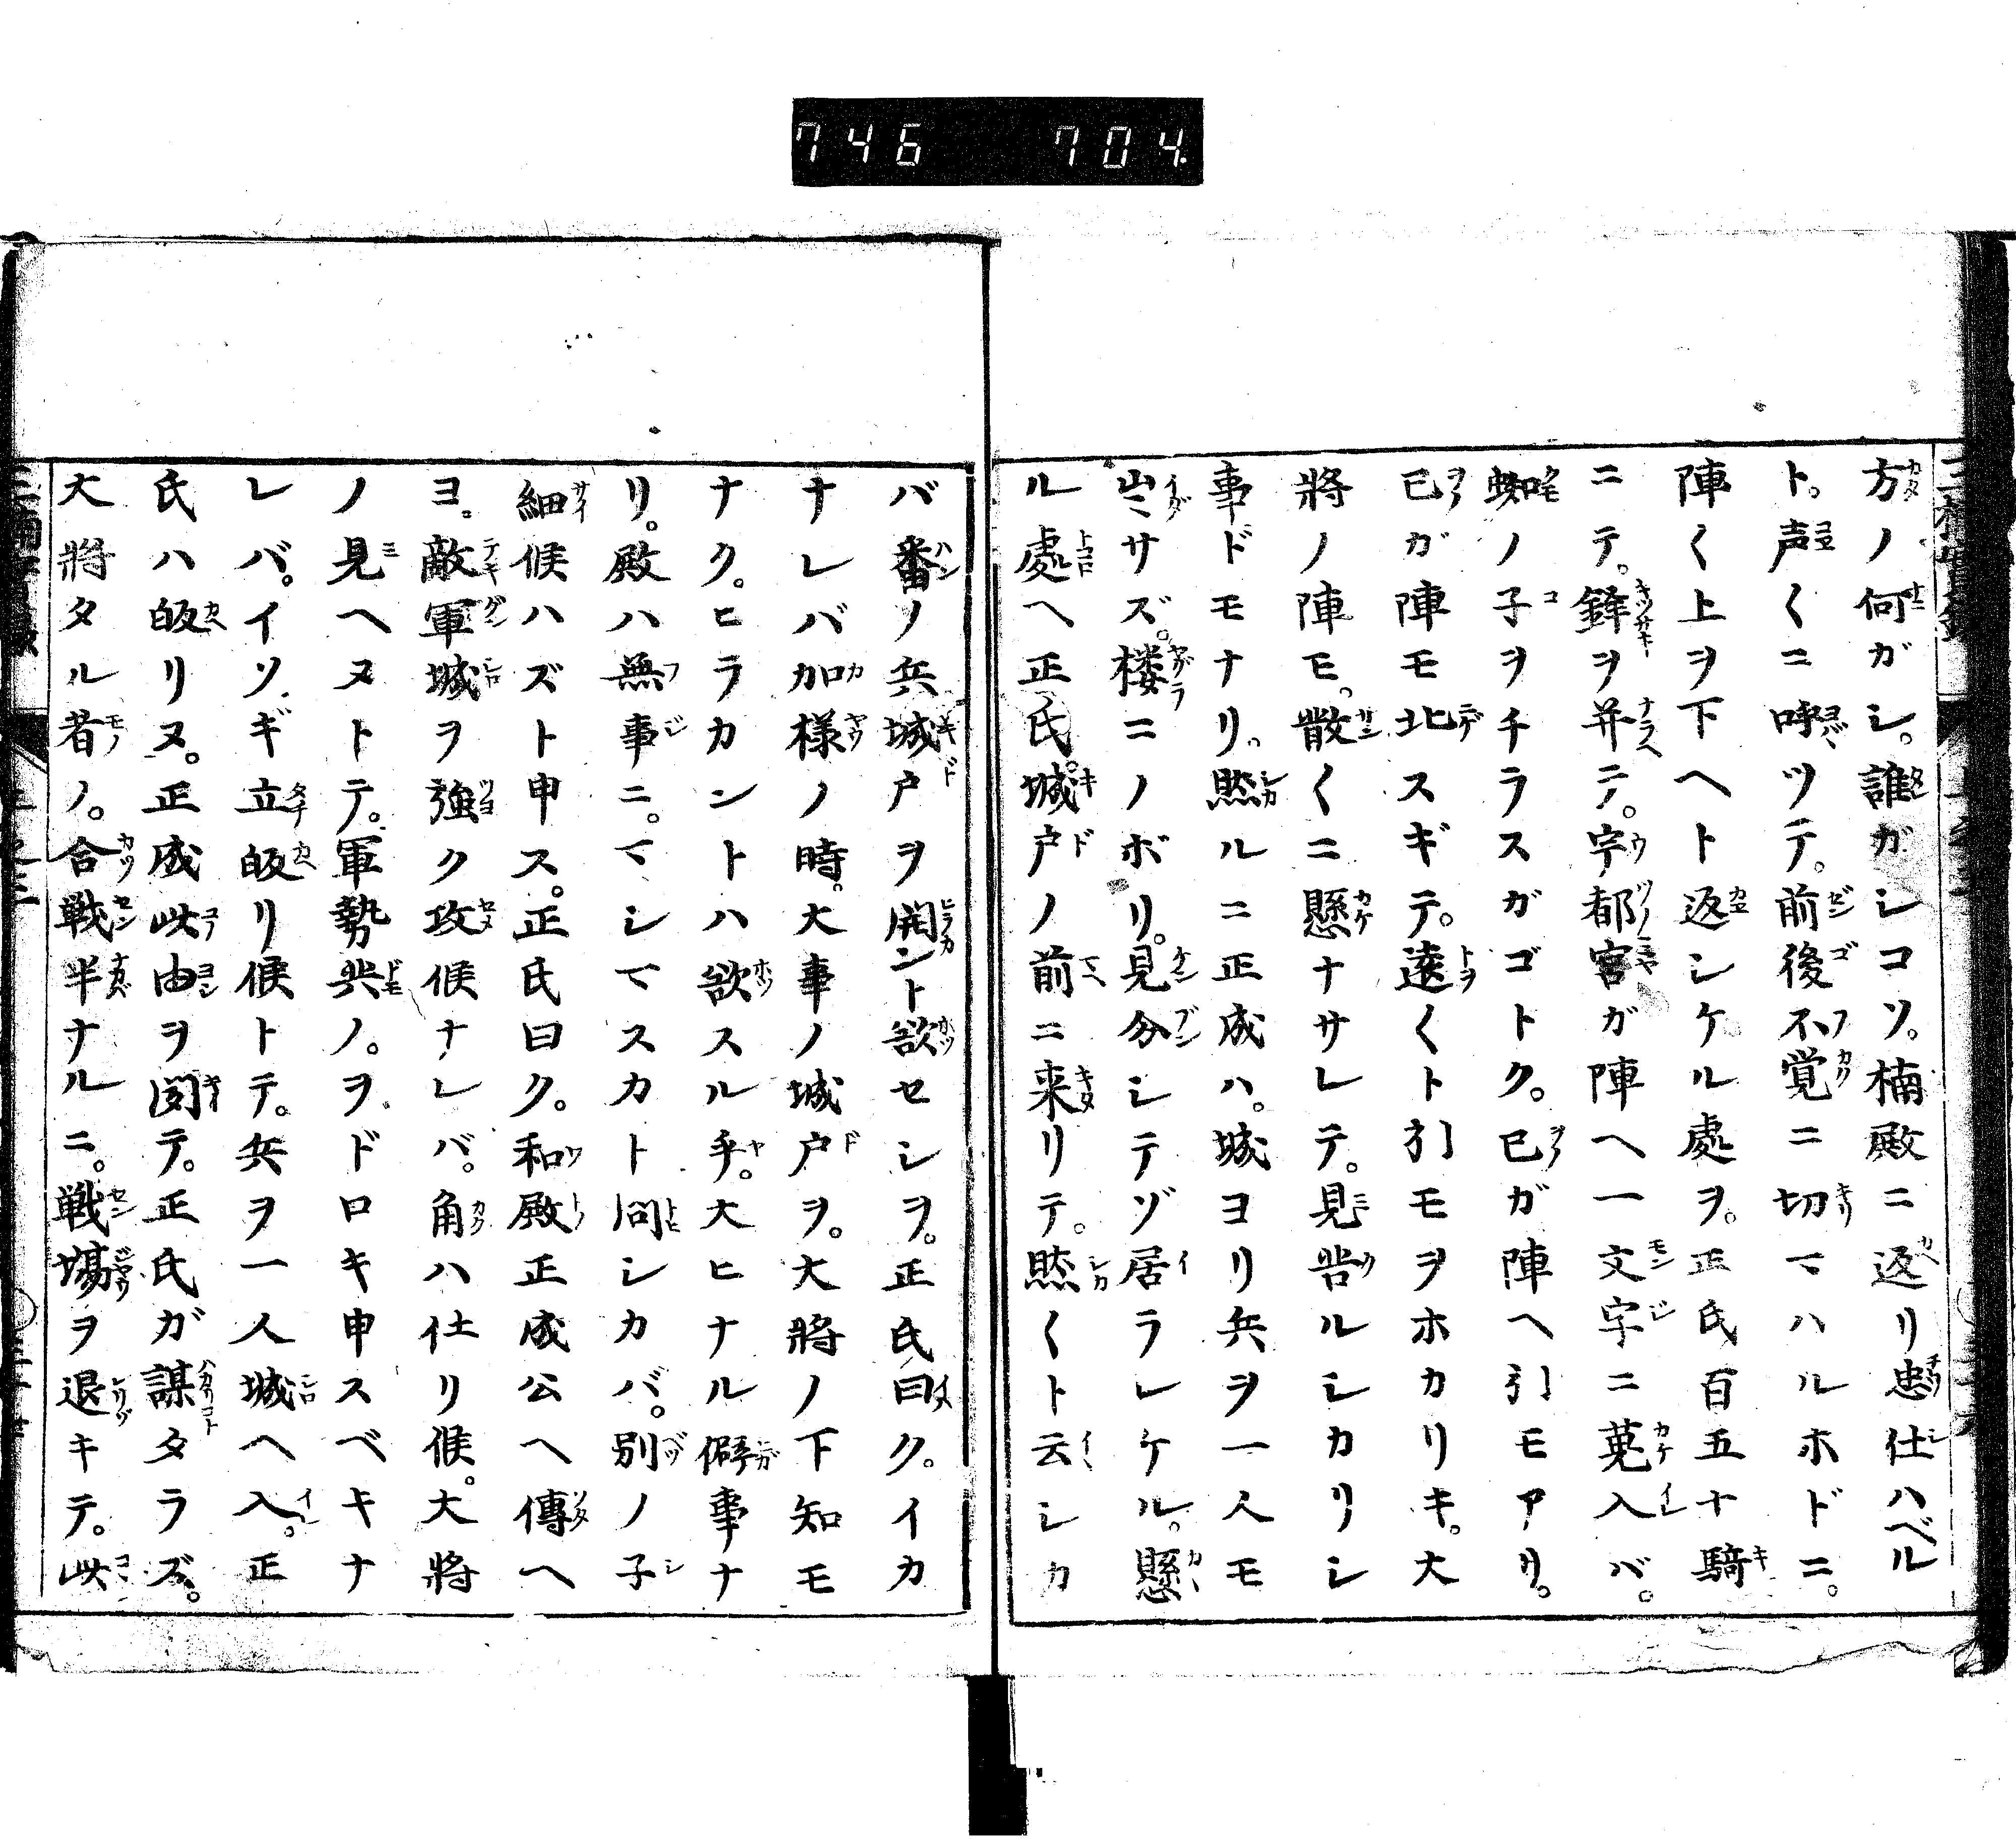 746 704.
方ノ何ガシ。誰ガシコソ。楠殿ニ返リ忠仕ハベル
ト。声〱ニ呼ツテ。前後不覚ニ切マハルホドニ。
陣〱上ヲ下ヘト返シケル處ヲ。正氏百五十騎
ニテ。鋒ヲ并テ。宇都宮ガ陣ヘ一文字ニ蒐入バ。
蜘ノ子ヲチラスガゴトク。已ガ陣ヘ引モアリ。
已ガ陣モ北スギテ。遠〱ト引モヲホカリキ。大
將ノ陣モ。散〱ニ懸ナサレテ。見苦ルシカリシ
事ドモナリ。然ルニ正成ハ。城ヨリ兵ヲ一人モ
出サズ。楼ニノボリ。見分シテゾ居ラレケル。懸
ル處ヘ正氏。城戸ノ前ニ来リテ。然〱ト云シカ
バ番ノ兵城戸ヲ開ント欲セシヲ。正氏曰ク。イカ
ナレバ加様ノ時。大事ノ城戸ヲ。大將ノ下知モ
ナク。ヒラカントハ欲スル乎。大ヒナル僻事ナ
リ。殿ハ無事ニ。マシマスカト問シカバ。別ノ子
細候ハズト申ス。正氏曰ク。和殿正成公ヘ傳ヘ
ヨ。敵軍城ヲ強ク攻候ナレバ。角ハ仕リ候。大將
ノ見ヘヌトテ。軍勢共ノ。ヲドロキ申スベキナ
レバ。イソギ立皈リ候トテ。兵ヲ一人城ヘ入。正
氏ハ皈リヌ。正成此由ヲ聞テ。正氏ガ謀タラズ。
大將タル者ノ。合戦半ナルニ。戦場ヲ退キテ。此